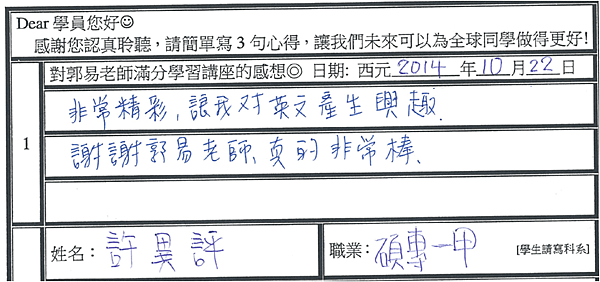 Dear 學員您好☺
感謝您認真聆聽，請簡單寫 3 句心得，讓我們未來可以為全球同學做得更好!
對郭易老師滿分學習講座的感想◎ 日期: 西元 2014 年 10 月 22 日
1
非常精彩，讓我对英文產生興趣.
謝謝郭易老師、真的非常棒.
姓名： 許異評
職業： 碩專一甲 [學生請寫科系]